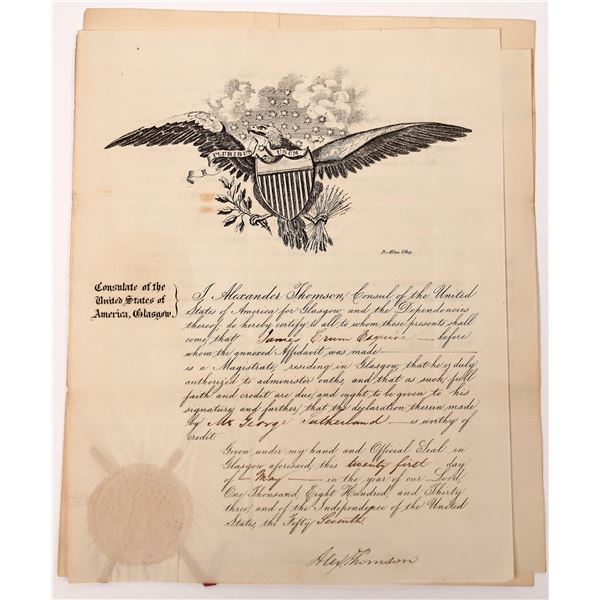 E PLURIBUS UNUM
D. Allan Lithog.
Consulate of the
United States of
America, Glasgow.
I, Alexander Thomson, Consul of the United
States of America for Glasgow and the Dependencies
thereof, do hereby certify to all to whom these presents shall
come, that James Crum Esquire before
whom the annexed Affidavit was made
is a Magistrate, residing in Glasgow, that he is duly
authorized to administer oaths, and that as such, full
faith and credit are due, and ought to be given to his
signature, and further, that the declaration therein made
by Mr George Sutherland is worthy of
credit.
Given under my hand and Official Seal in
Glasgow aforesaid, this twenty first day
of May in the year of our Lord,
One Thousand, Eight Hundred, and Thirty
three, and of the Independence of the United
States, the Fifty Seventh.
Alex Thomson